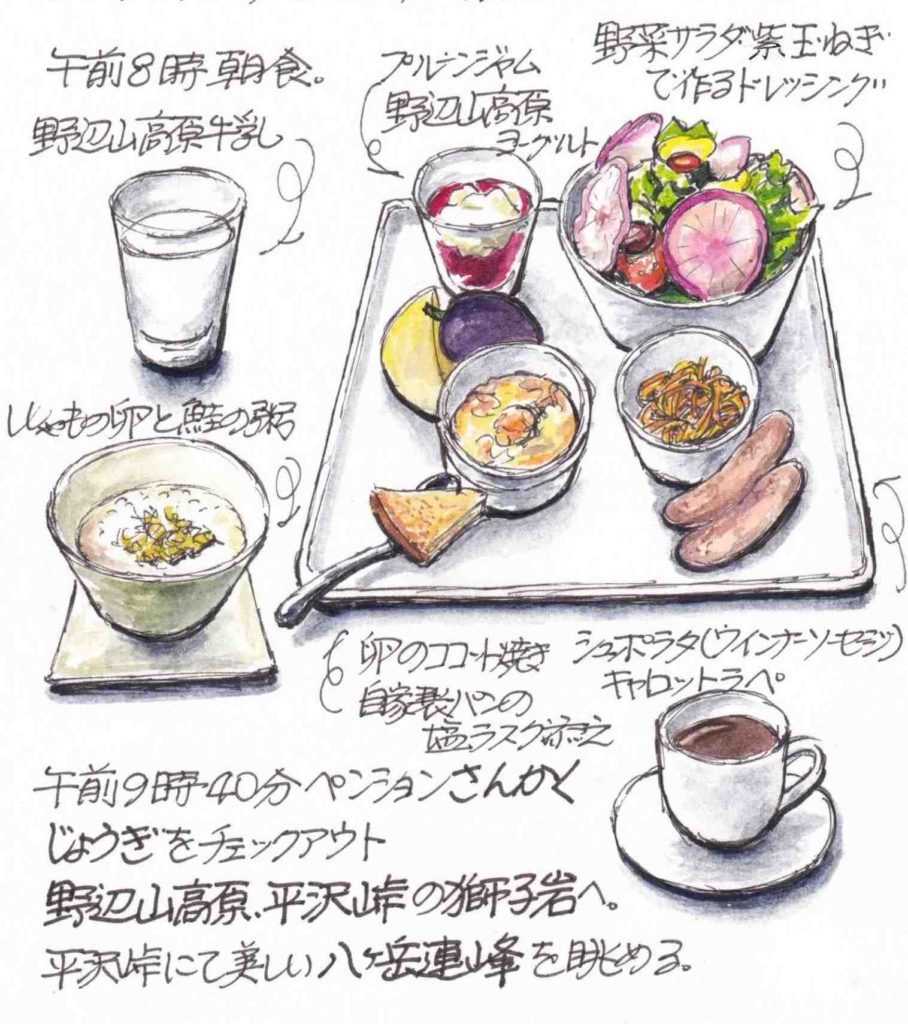 午前8時朝食。
野辺山高原牛乳
プルーンジャム
野辺山高原
ヨーグルト
野菜サラダ 紫玉ねぎ
で作るドレッシング
ししゃもの卵と鮭の粥
卵のココット焼き
自家製パンの
塩ラスク添え
シュポラタ(ウインナーソーセージ)
キャロットラペ
午前9時40分ペンションさんかく
じょうぎをチェックアウト
野辺山高原、平沢峠の獅子岩へ。
平沢峠にて美しい八ヶ岳連峰を眺める。